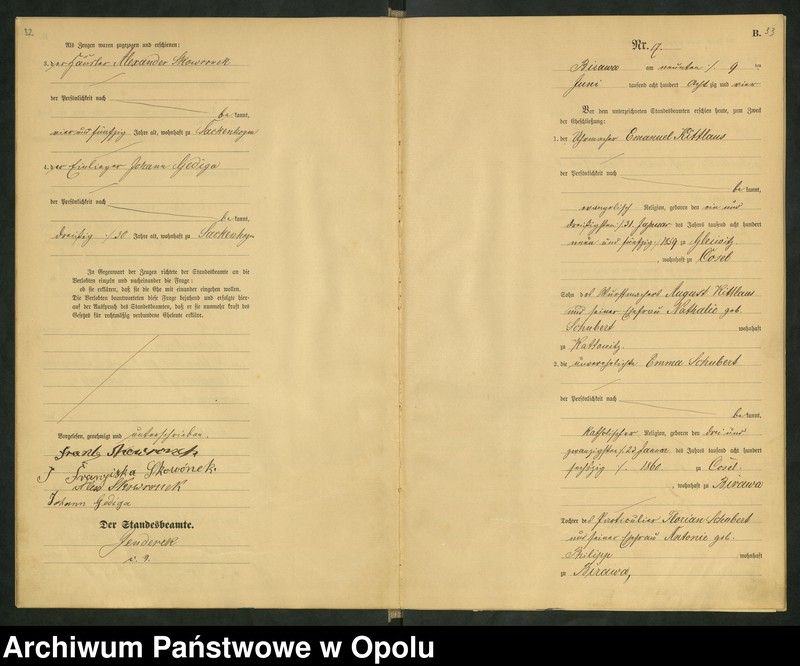 32.
Als Zeugen waren zugezogen und erschienen:
3. der Häusler Alexander Skowronek
der Persönlichkeit nach
be kannt,
vier und fünfzig Jahre alt, wohnhaft zu Sackenhoym
4. der Einlieger Johann Gediga
der Persönlichkeit nach
be kannt,
dreißig /: 30. Jahre alt, wohnhaft zu Sackenhoym
In Gegenwart der Zeugen richtete der Standesbeamte an die
Verlobten einzeln und nacheinander die Frage:
ob sie erklären, daß sie die Ehe mit einander eingehen wollen.
Die Verlobten beantworteten diese Frage bejahend und erfolgte hier-
auf der Ausspruch des Standesbeamten, daß er sie nunmehr kraft des
Gesetzes für rechtmäßig verbundene Eheleute erkläre.
Vorgelesen, genehmigt und unterschrieben.
Frantz Skowronek
Franziska Skowónek
Skowronek
Johann Gediga
Der Standesbeamte.
Jenderek
B.
33
Nr. 17.
Birawa am neunten /: 9 ten
Juni tausend acht hundert Acht zig und vier
Vor dem unterzeichneten Standesbeamten erschien heute, zum Zweck
der Eheschließung:
1. der Uhrmacher Emanuel Kittlaus
der Persönlichkeit nach
be kannt,
evangelisch Religion, geboren den ein und
dreißigsten /: 31. Januar des Jahres tausend acht hundert
neun und fünfzig /: 1859 zu Gleiwitz
, wohnhaft zu Cosel
Sohn des August Kittlaus
und seiner Ehefrau Nathalie geb.
Schubert wohnhaft
zu Kattowitz.
2. die unverehelichte Emma Schubert
der Persönlichkeit nach
be kannt,
katholischer Religion, geboren den drei und
zwanzigsten /: 23. Januar des Jahres tausend acht hundert
sechzig /: 1860 zu Cosel
, wohnhaft zu Birawa
Tochter des Particulier Florian Schubert
und seiner Ehefrau Antonie geb.
Philipp wohnhaft
zu Birawa,
Archiwum Państwowe w Opolu